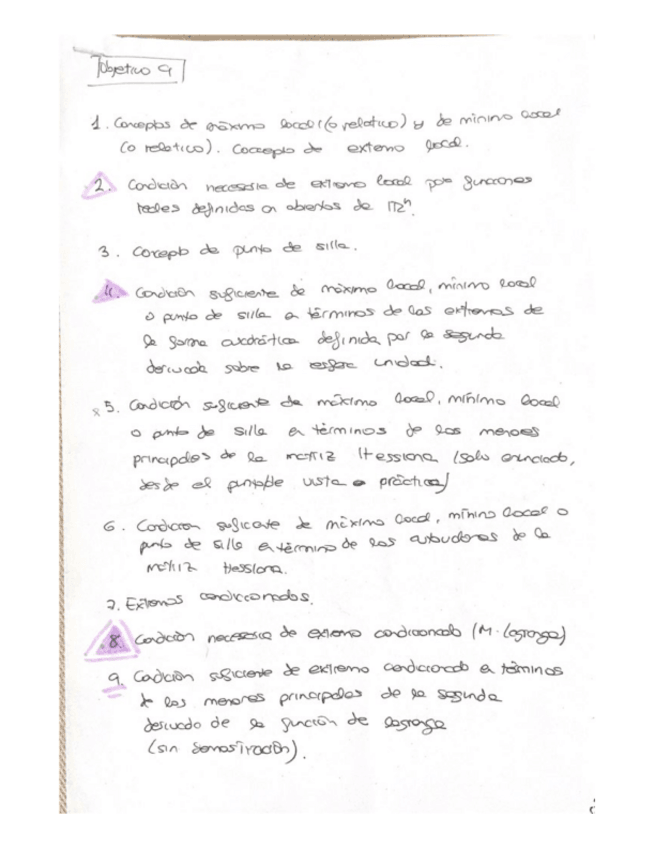 Objetivo 9
1. Conceptos de máximo local (o relativo) y de mínimo local
(o relativo). Concepto de extremo local.
2. Condición necesaria de extremo local para funciones
reales definidas en abiertos de ℝⁿ.
3. Concepto de punto de silla.
4. Condición suficiente de máximo local, mínimo local
o punto de silla en términos de los extremos de
la forma cuadrática definida por la segunda
derivada sobre la esfera unidad.
x 5. Condición suficiente de máximo local, mínimo local
o punto de silla en términos de los menores
principales de la matriz Hessiana (solo enunciado,
desde el punto de vista práctico)
6. Condición suficiente de máximo local, mínimo local o
punto de silla en término de los autovalores de la
matriz Hessiana.
7. Extremos condicionados.
8. Condición necesaria de extremo condicionado (M. Lagrange)
9. Condición suficiente de extremo condicionado en términos
de los menores principales de la segunda
derivada de la función de Lagrange
(sin demostración).